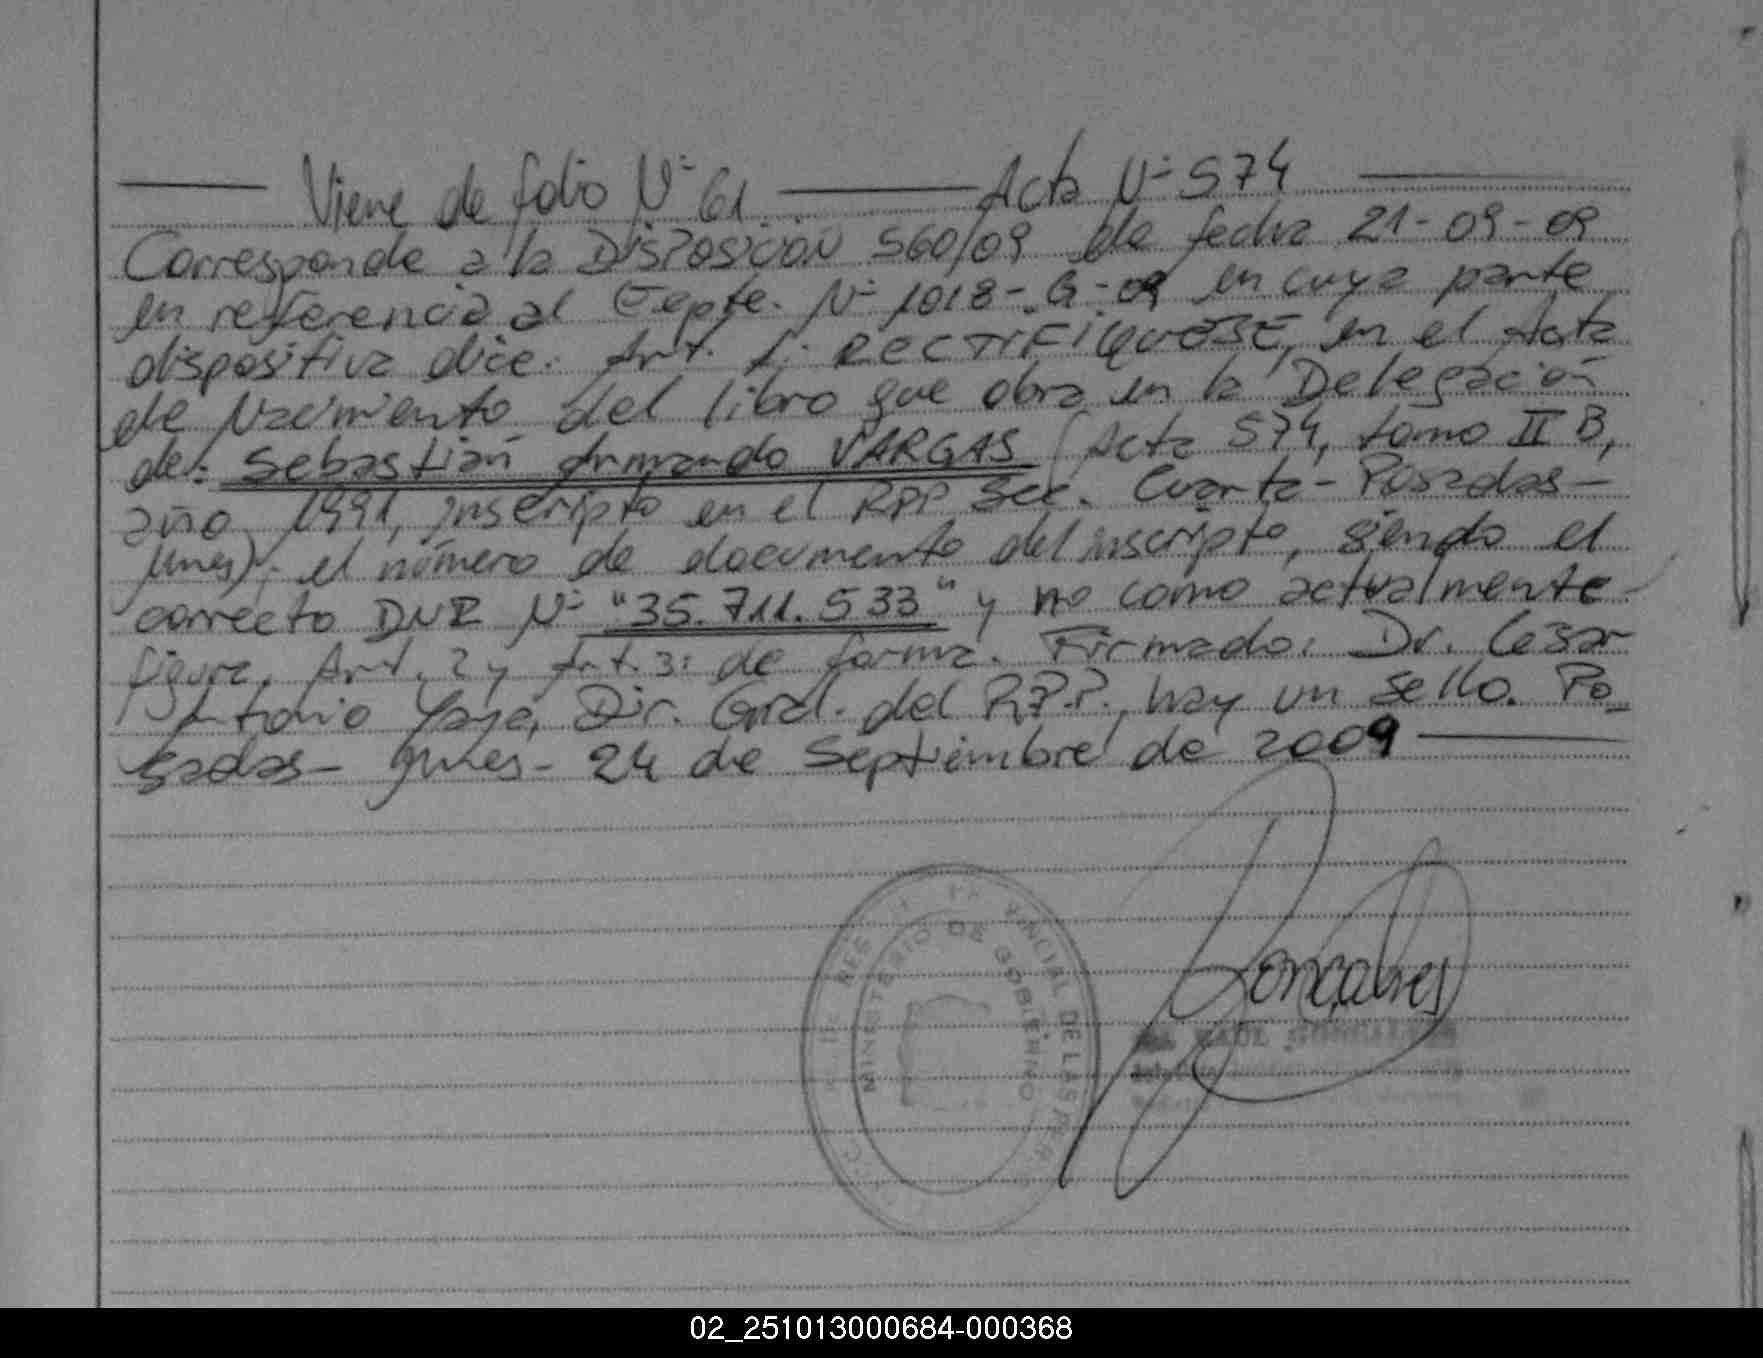 Viene de folio Nº 61 Acta Nº 574
Corresponde a la DISPOSICION 560/09 de fecha 21-09-09
en referencia al Expte. Nº 1018-G-09 en cuya parte
dispositiva dice: Art. 1: RECTIFIQUESE, en el Acta
de Nacimiento del libro que obra en la Delegación
de: Sebastián Armando VARGAS (Acta 574, tomo II B,
año 1991, inscripto en el RPP Sec. Cuarta - Posadas -
Mnes); el número de documento del inscripto, siendo el
correcto DNI Nº "35.711.533" y no como actualmente
figura. Art. 2 y Art. 3: de forma. Firmado: Dr. Cesar
Antonio Yaya, Dir. Gral. del R.P.P., hay un sello. Po_
sadas - Mnes - 24 de Septiembre de 2009
MINISTERIO DE GOBIERNO
DE LAS PER
Goncalves
RAUL
02_251013000684-000368